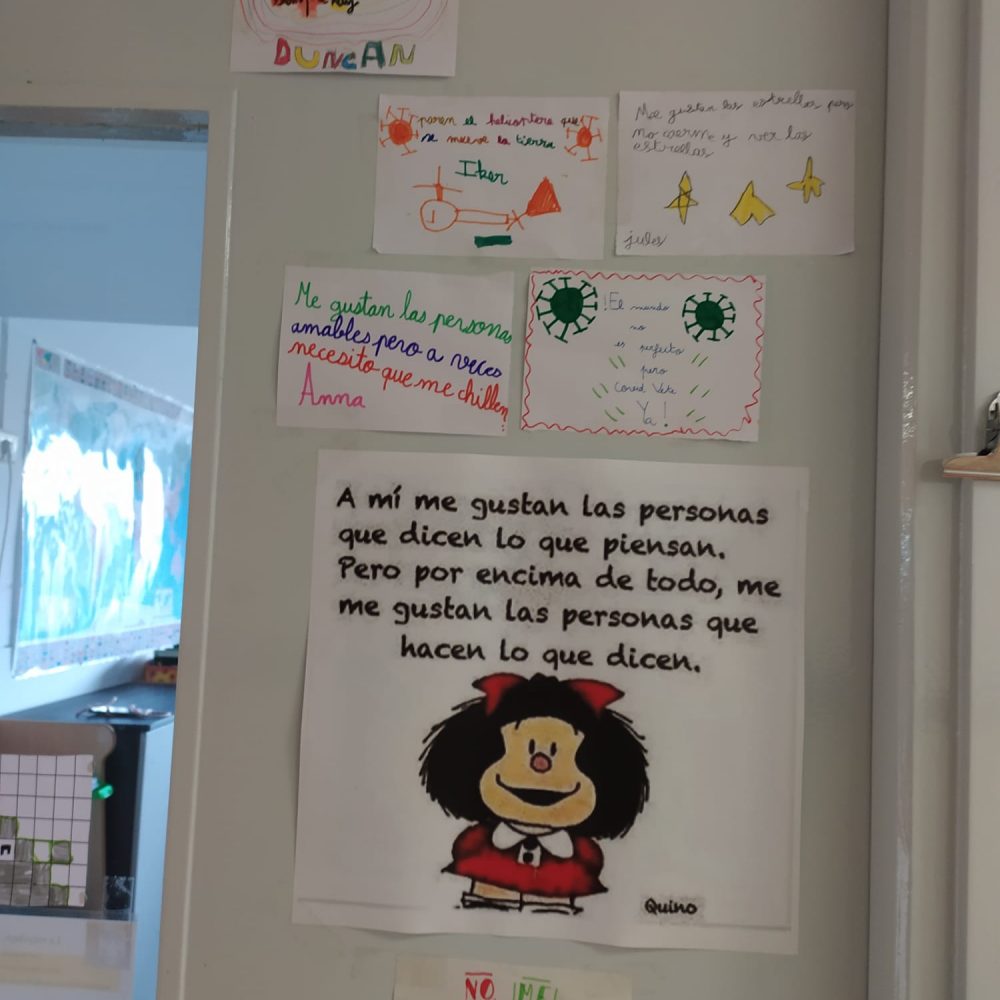 DUNCAN
paren el helicoptero que
se mueve la tierra
Iker
Me gustan las estrellas pero
no coerme y ver las
estrellas
jules
Me gustan las personas
amables pero a veces
necesito que me chillen
Anna
¡El mundo
no
es perfecto
pero
Covid Vete
Ya!
A mí me gustan las personas
que dicen lo que piensan.
Pero por encima de todo, me
me gustan las personas que
hacen lo que dicen.
Quino
NO ME